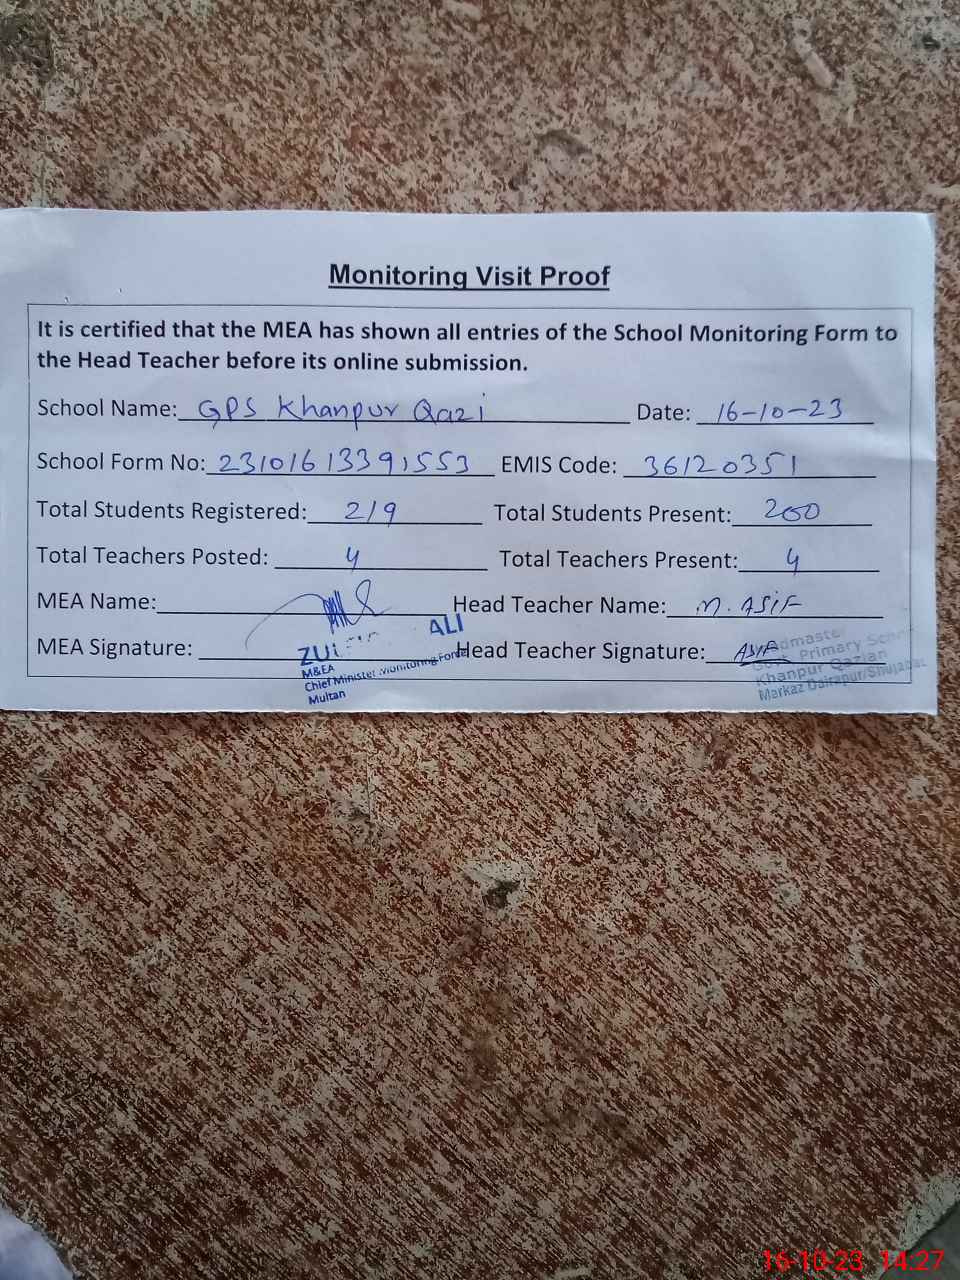 Monitoring Visit Proof
It is certified that the MEA has shown all entries of the School Monitoring Form to
the Head Teacher before its online submission.
School Name: GPS Khanpur Qazi Date: 16-10-23
School Form No: 23101613391553 EMIS Code: 36120351
Total Students Registered: 219 Total Students Present: 200
Total Teachers Posted: 4 Total Teachers Present: 4
MEA Name: Head Teacher Name: M. ASIF
MEA Signature: Head Teacher Signature: ASIF
ALI
M&EA
Chief Minister Monitoring Force
Multan
Primary
Khanpur Qazian
Markaz
16-10-23 14:27